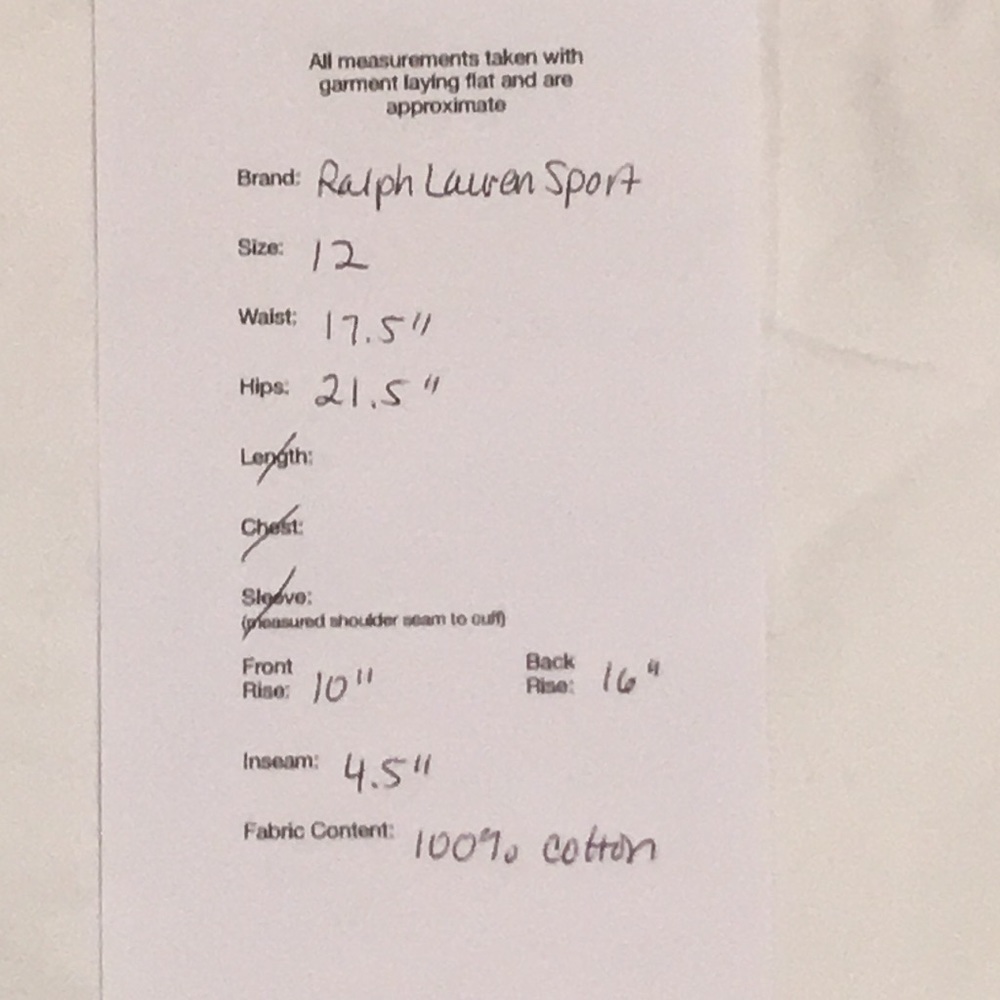 All measurements taken with
garment laying flat and are
approximate
Brand: Ralph Lauren Sport
Size: 12
Waist: 17.5"
Hips: 21.5"
Length:
Chest:
Sleeve:
(measured shoulder seam to cuff)
Front Rise: 10" Back Rise: 16"
Inseam: 4.5"
Fabric Content: 100% cotton